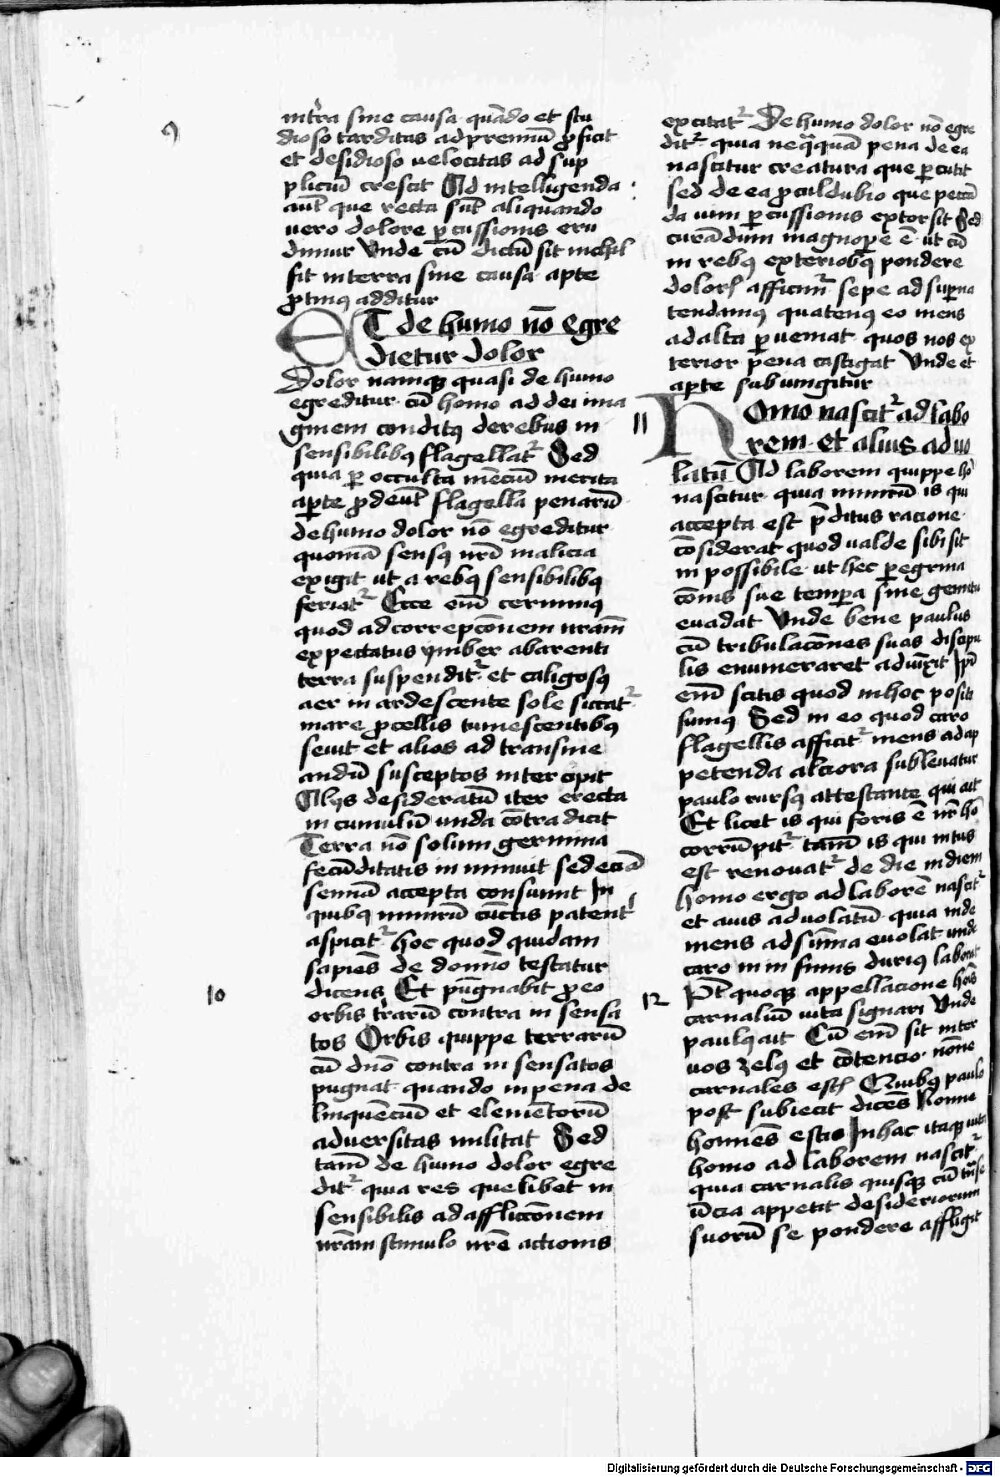 9
int̄ra sine causa quādo et stu
dioso tarditas ad premiū ꝓficit
et desidioso uelocitas ad sup
pliciū crescit Ad intelligenda
aūt que recta sūt aliquando
uero dolore ꝑcussionis eru
dimur Vnde cū dictū sit nichil
fit in terra sine causa apte
ꝓtinꝰ additur
ET de humo nō egre
dietur dolor
Dolor namqꝫ quasi de humo
egreditur cū homo ad dei ima
ginem conditꝰ de rebus in
sensibilibꝰ flagellatᷣ Sed
quia ꝑ occulta mēciū merita
aꝑte ꝓdeūt flagella penarū
de humo dolor nō egreditur
quoniā sensꝰ nr̄i malicia
exigit ut a rebꝰ sensibilibꝰ
feriatᷣ Ecce eīm cernimꝰ
quod ad correpcōnem nram̄
expectatus ymber abarenti
terra suspenditᷣ et caligosꝰ
aer in ardescente sole siccatᷣ
mare ꝓcellis tumescentibꝰ
seuit et alios ad transme
andū susceptos intercipit
Alijs desideratū iter erecta
in cumuliū unda cōtradicit
Terra nō solum germina
fecūditatis in minuit sed eciā
seminū accepta consumit In
quibꝰ nimirū cūctis patent̄
aspicitᷣ hoc quod quidam
sapiēs de domīo testatur
dicens Et pūgnabit ꝓ eo
10
orbis tr̄arū contra in sensa
tos Orbis quippe terrarū
cū dno contra in sensatos
pugnat quando in pena de
linquēciū et elemētorū
aduersitas militat Sed
tam̄ de humo dolor egre
ditᷣ quia res quelibet in
sensibilis ad afflictōnem
nram̄ stimulo nr̄e actionis
excitatᷣ De humo dolor nō egre
ditᷣ quia neq̄quā pena de ea
nascitur creatura que ꝑcutit
sed de ea ꝓculdubio que peccā
da uim ꝑcussionis extorsit Sed
curādum magnopere ē ut cū
in rebꝰ exterioribꝰ pondere
doloris afficimᷣ sepe ad suꝑna
tendamꝰ quatenꝰ eo mens
ad alta ꝑueniat quos nos ex
terior pena castigat Vnde et
aꝑte subiungitur
11
HOmo nascitᷣ ad labo
rem et aluis ad uo
latū Ad laborem quippe hō
nascitur quia nimirū is qui
accepta est p̄ditus racione
cōsiderat quod ualde sibi sit
inpossibile ut hec ꝑegrina
cōnis sue temꝑa sine gemitu
euadat Vnde bene paulus
cū tribulacōnes suas discipu
lis enumeraret adiūxit Ip̄i
eīm scitis quod in hoc positi
sumꝰ Sed in eo quod caro
flagellis afficitᷣ mens ad ap
petenda alciora subleuatur
paulo rursꝰ attestante qui ait
Et licet is qui foris ē nr̄ hō
corrūpitᷣ tam̄ is qui intus
est renouatᷣ de die in diem
homo ergo ad laborē nascitᷣ
et auis ad volatū quia inde
mens ad sūma euolat unde
caro in infimis durius laborat
12
Pt̄ quoqꝫ appellacione hōīs
carnaliū uita signari Vnde
paulꝰ ait Cū eīm sit inter
uos zelꝰ et cōtencio nōne
carnales estis Quibꝰ paulo
post subiecit dicēs Nonne
homines estis In hac itaqꝫ uita
homo ad laborem nascitᷣ
quia carnalis quisqꝫ cū
appetit desideriorum
suorū se pondere affligit
Digitalisierung gefördert durch die Deutsche Forschungsgemeinschaft - DFG